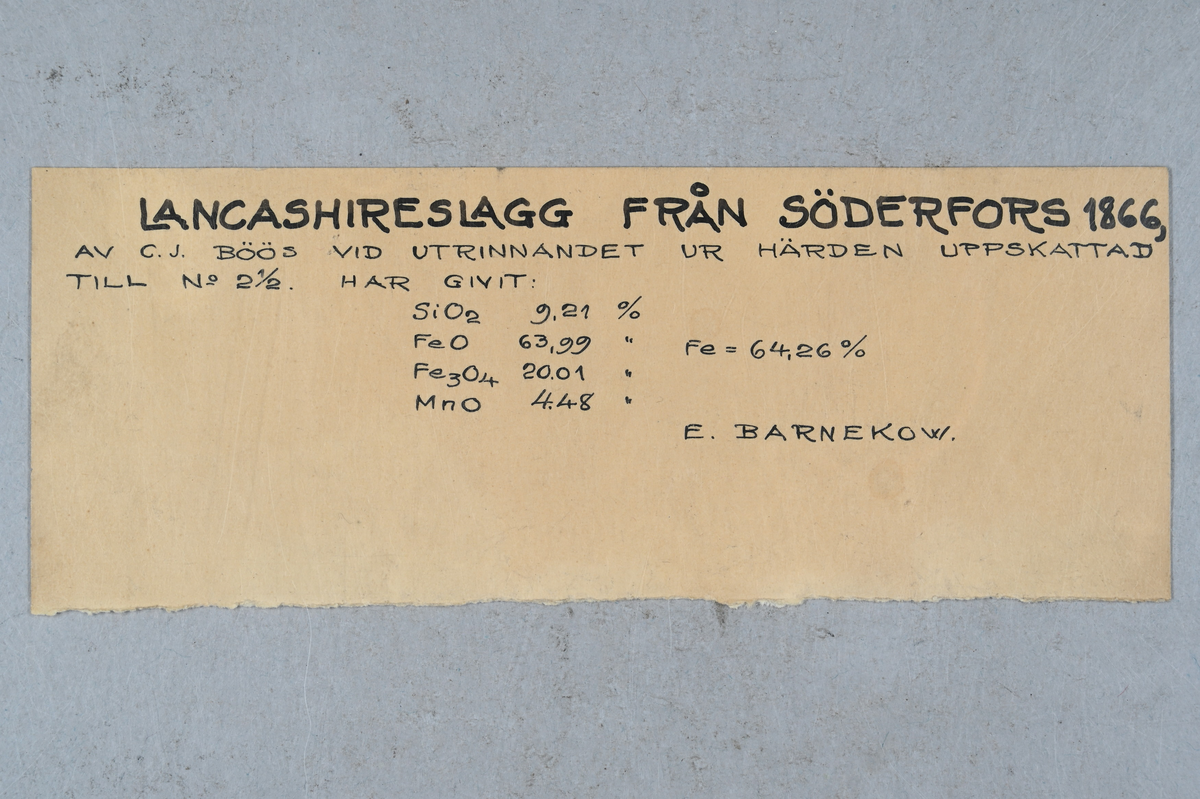 LANCASHIRESLAGG FRÅN SÖDERFORS 1866,
AV C.J. BÖÖS VID UTRINNANDET UR HÄRDEN UPPSKATTAD
TILL Nº 2½. HAR GIVIT:
SiO₂ 9,21 %
FeO 63,99 "
Fe = 64,26 %
Fe₃O₄ 20.01 "
MnO 4.48 "
E. BARNEKOW.